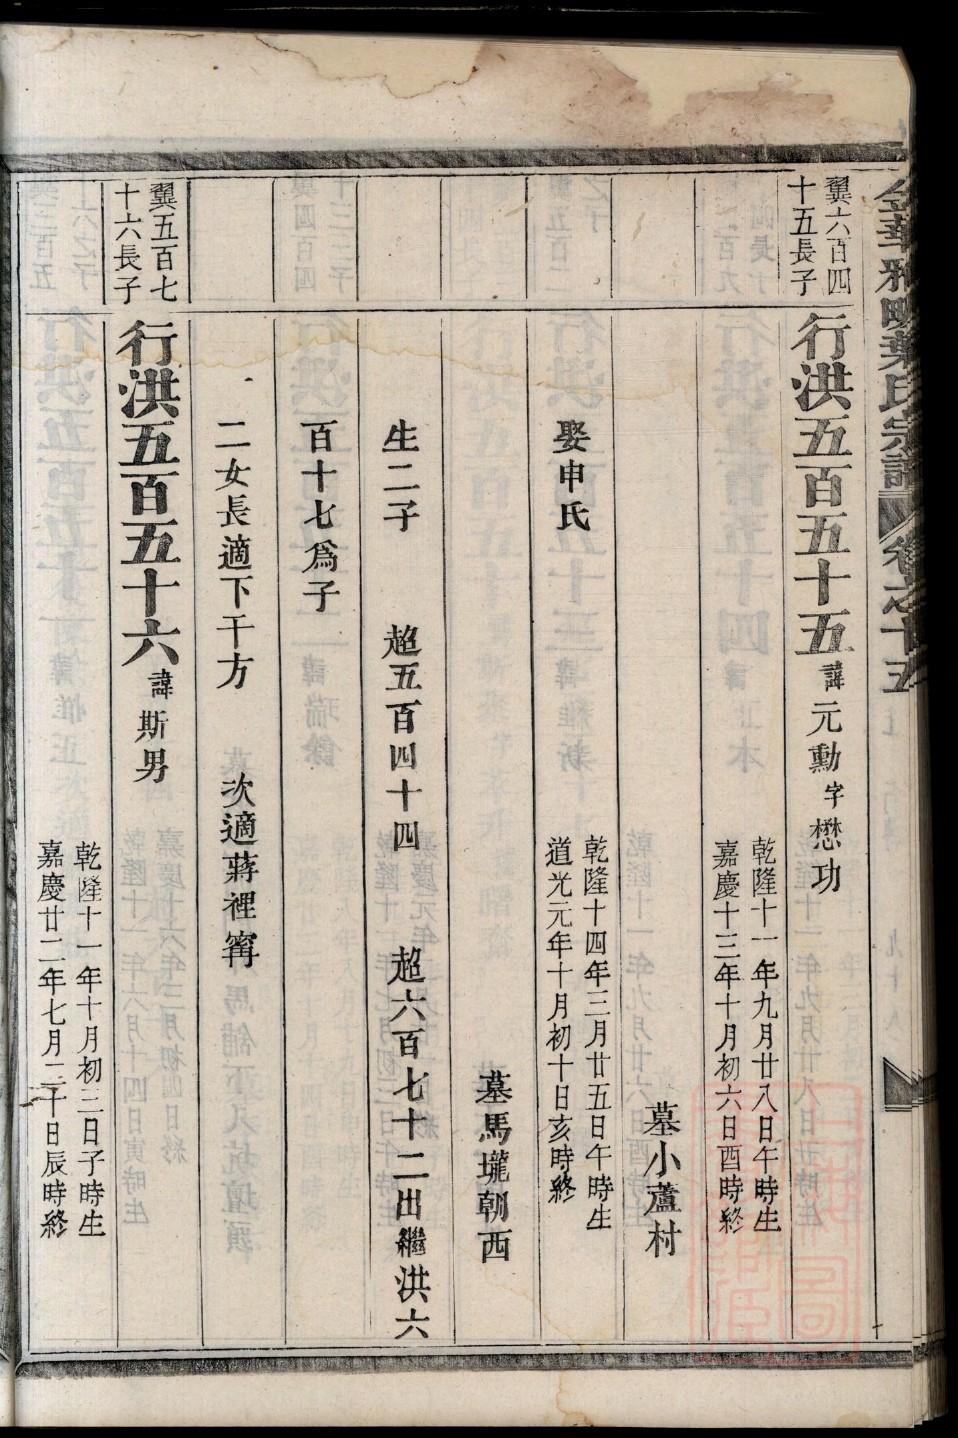 金華雅畈葉氏宗譜 卷之十五
翼六百四
十五長子
行洪五百五十五 諱元勳字懋功
乾隆十一年九月廿八日午時生
嘉慶十三年十月初六日酉時終
墓小蘆村
娶申氏
乾隆十四年三月廿五日午時生
道光元年十月初十日亥時終
墓馬壠朝西
生二子 超五百四十四 超六百七十二出繼洪六
百十七爲子
二女長適下干方 次適蔣裡甯
翼五百七
十六長子
行洪五百五十六 諱斯男
乾隆十一年十月初三日子時生
嘉慶廿二年七月二十日辰時終